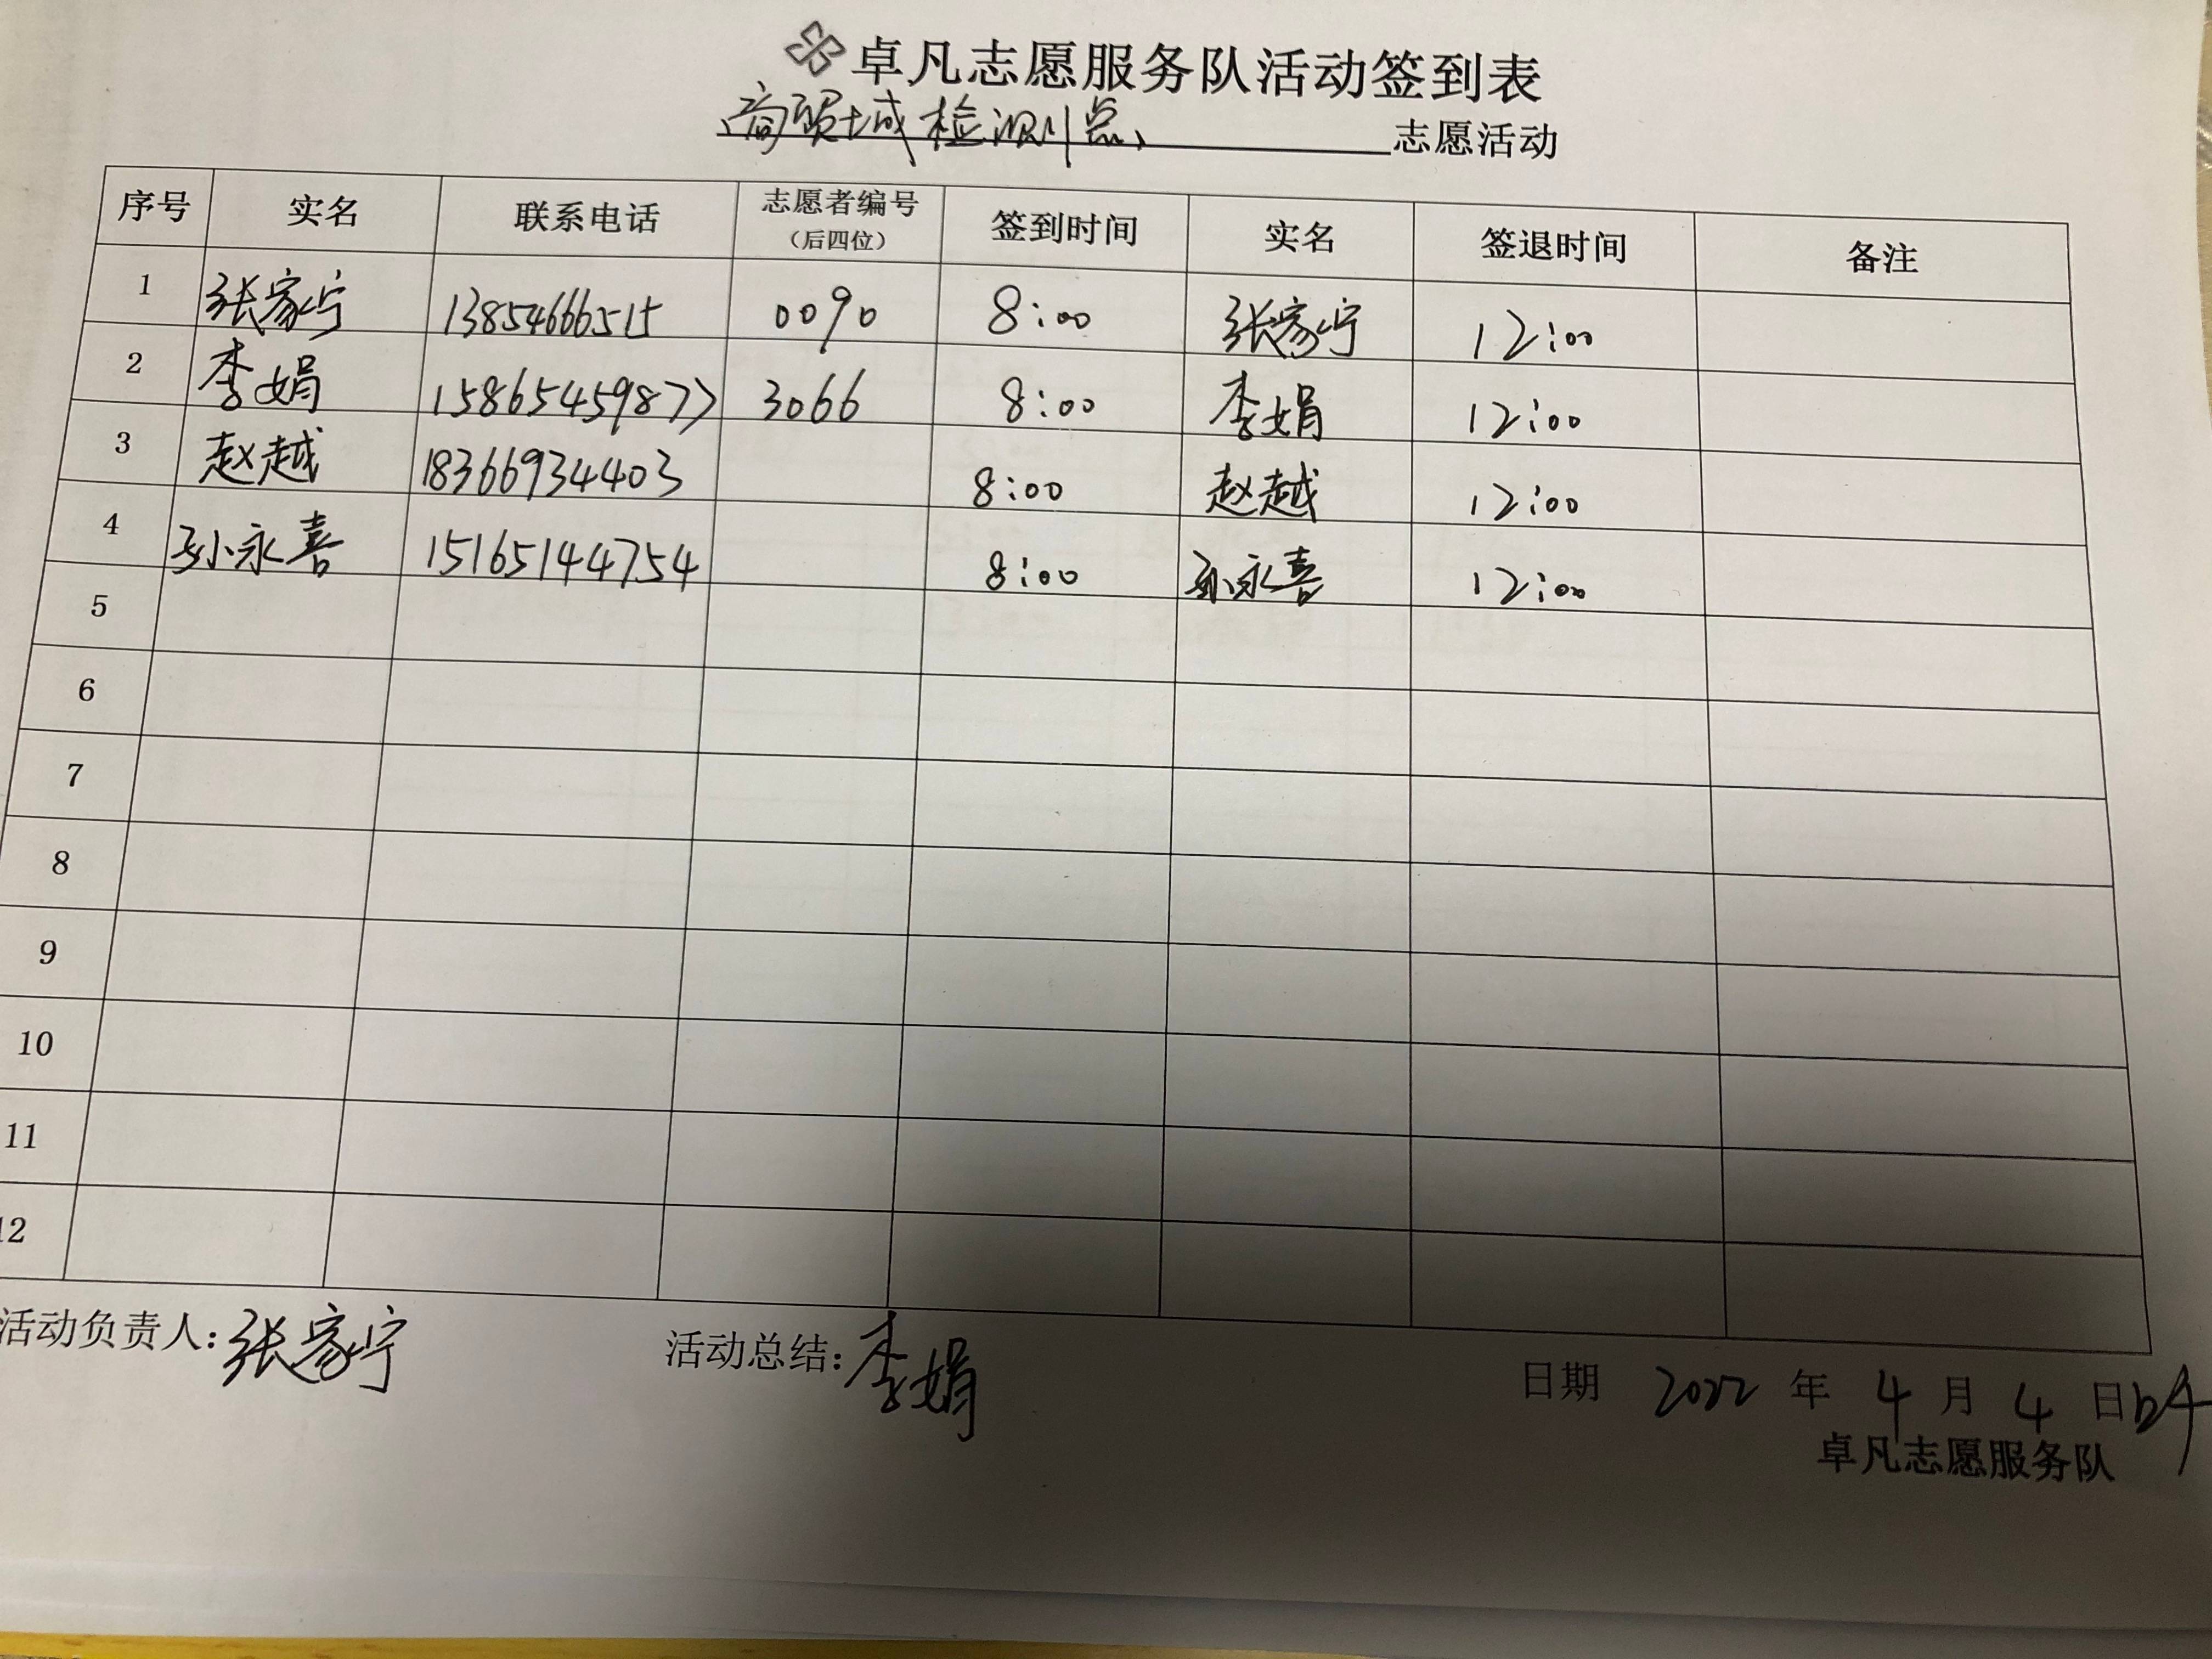 卓凡志愿服务队活动签到表
检测点 志愿活动
序号 实名 联系电话 志愿者编号（后四位） 签到时间 实名 签退时间 备注
1 张家宁 13854666515 0090 8:00 张家宁 12:00
2 李娟 15865459877 3066 8:00 李娟 12:00
3 赵越 18366934403 8:00 赵越 12:00
4 孙永喜 15165144754 8:00 孙永喜 12:00
5
6
7
8
9
10
11
12
活动负责人：张家宁 活动总结：李娟 日期 2022 年 4 月 4 日
卓凡志愿服务队